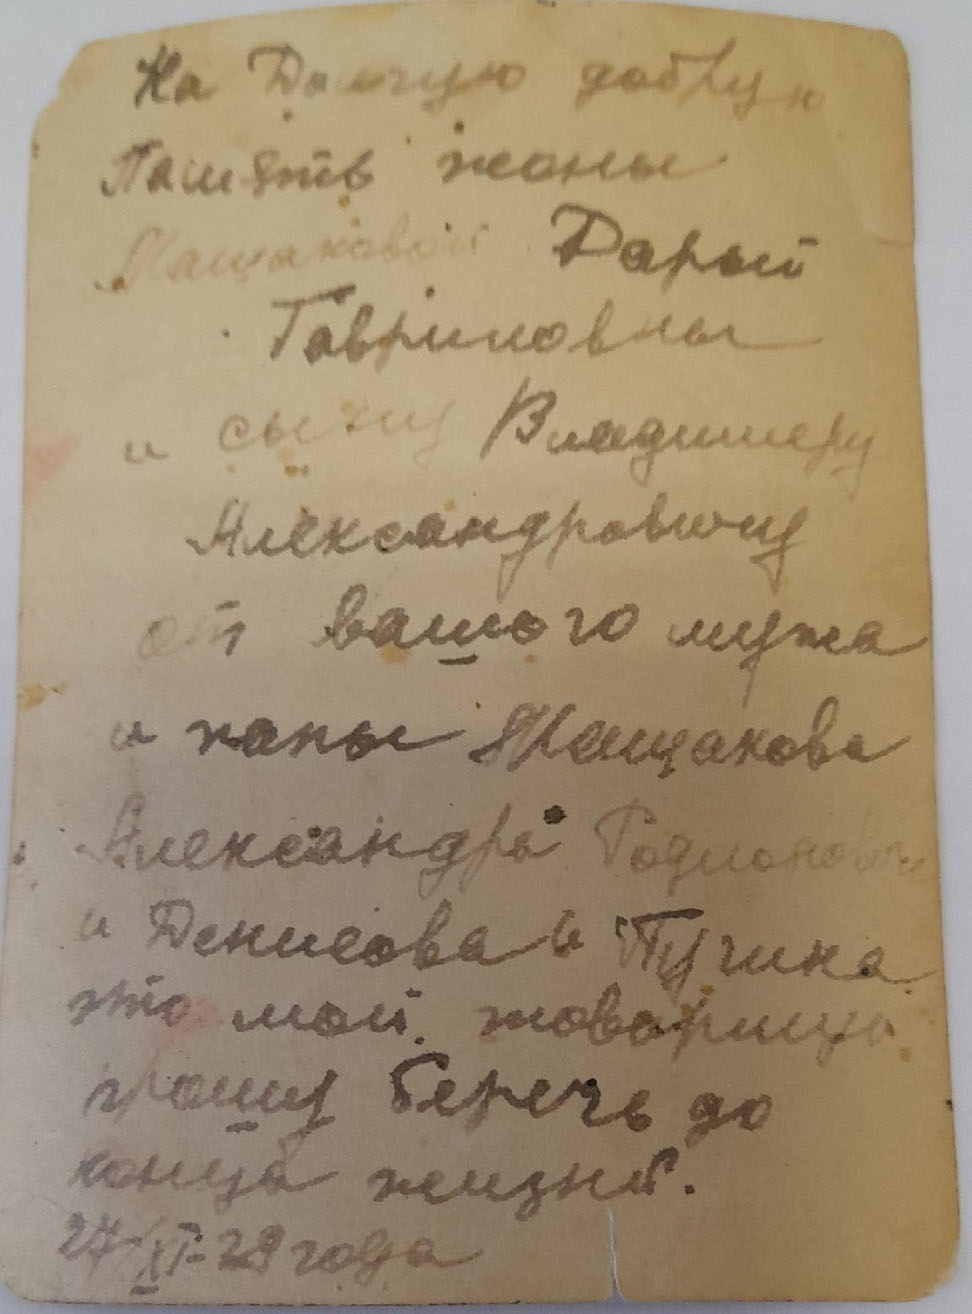 На Долгую добрую
Память жоны
Мащаковой Дарьи
Гавриловны
и сыну Владимеру
Александровичу
от вашого мужа
и папы Мащакова
Александра Родионович
и Денисова и Пугина
это мои товарищи
прошу беречь до
конца жизни.
27/XI-29 года